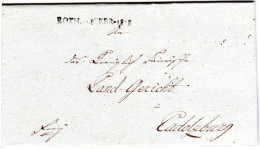 ROTH.
An
das Königlich Baierische
Land-Gericht
Cadolzburg